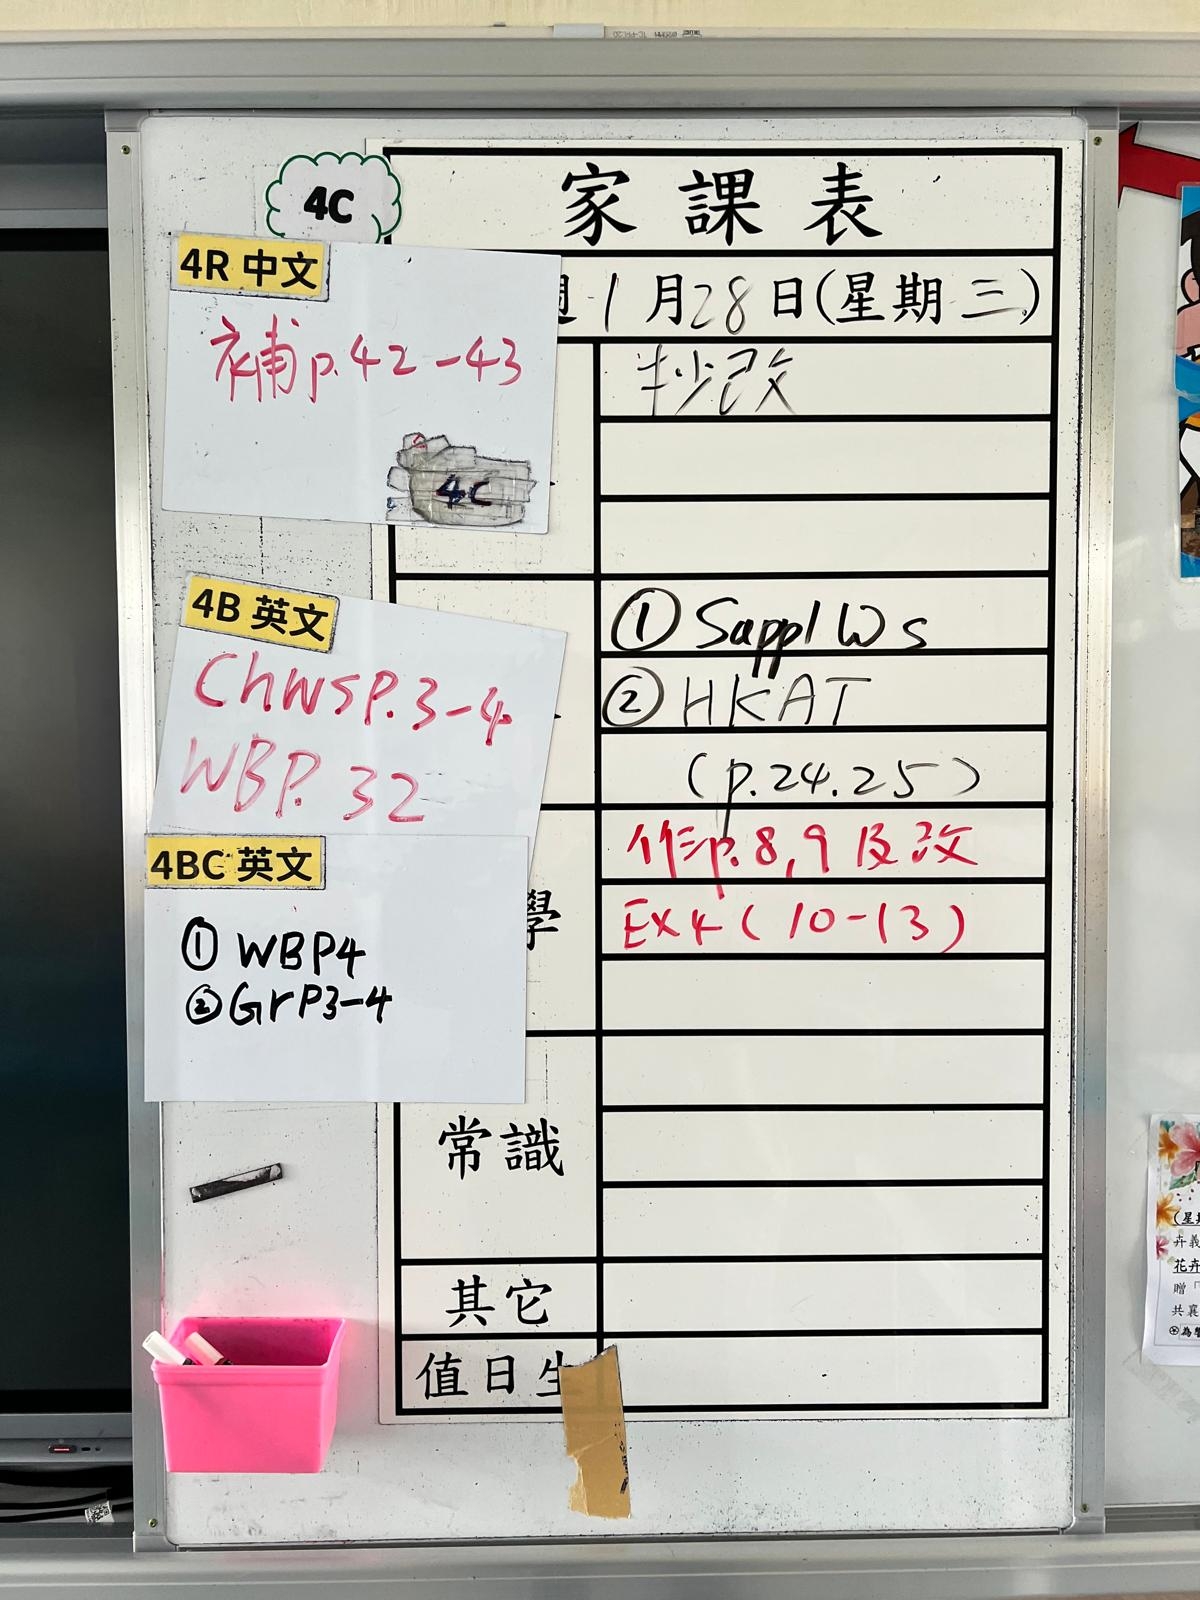 4C
家課表
1月28日(星期三)
4R 中文
補p.42-43
4C
抄改
4B 英文
ChWSP.3-4
WBP.32
① Suppl WS
② HKAT
(p.24.25)
4BC 英文
① WBP4
② GrP3-4
學
作p.8,9及改
EX4(10-13)
常識
其它
值日生